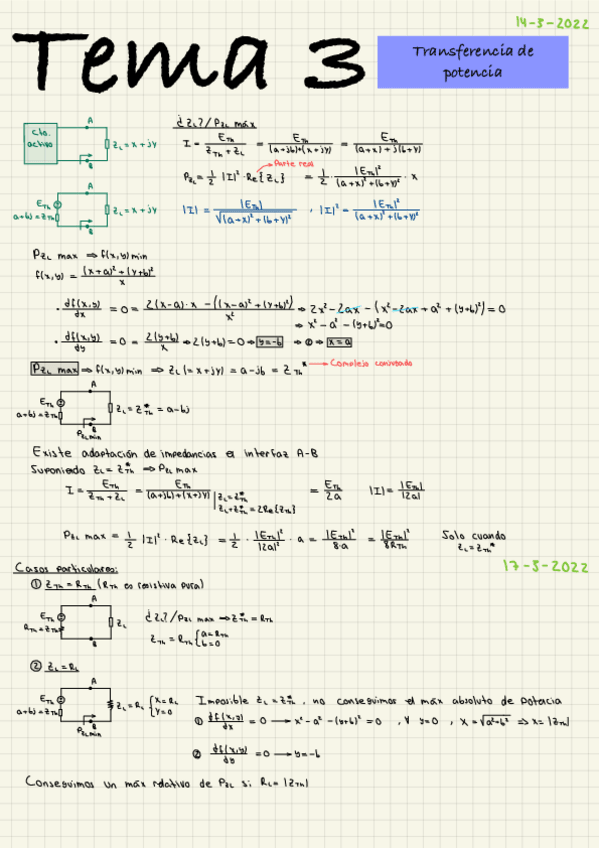 14-3-2022
Tema 3
Transferencia de
potencia
¿ZL?/PZL máx
Cto. activo
A
B
ZL = x + jy
I = ETh/(ZTh + ZL) = ETh/((a+jb)+(x+jy)) = ETh/((a+x)+j(b+y))
Parte real
PZL = 1/2 |I|² · Re{ZL} = 1/2 · |ETh|²/((a+x)²+(b+y)²) · x
A
ETh
a+bj = ZTh
ZL = x + jy
B
|I| = |ETh|/√((a+x)²+(b+y)²) , |I|² = |ETh|²/((a+x)²+(b+y)²)
PZL max ⇒ f(x,y) min
f(x,y) = ((x+a)²+(y+b)²)/x
· df(x,y)/dx = 0 = (2(x-a)·x - ((x-a)²+(y+b)²))/x² ⇒ 2x²-2ax-(x²-2ax+a²+(y+b)²) = 0
⇒ x²-a²-(y+b)²=0
· df(x,y)/dy = 0 = 2(y+b)/x ⇒ 2(y+b) = 0 ⇒ y=-b ⇒ ① ⇒ x=a
PZL max ⇒ f(x,y) min ⇒ ZL (= x+jy) = a-jb = ZTh* → Complejo conjugado
A
ETh
a+bj = ZTh
ZL = ZTh* = a-bj
B
PZL min
Existe adaptación de impedancias el interfaz A-B
Suponiendo ZL = ZTh* ⇒ PZL max
I = ETh/(ZTh + ZL) = ETh/((a+jb)+(x+jy)) | ZL=ZTh* ZL+ZTh*=2Re{ZTh} = ETh/2a |I| = |ETh|/|2a|
PZL max = 1/2 |I|² · Re{ZL} = 1/2 · |ETh|²/|2a|² · a = |ETh|²/8·a = |ETh|²/8RTh Solo cuando ZL=ZTh*
Casos particulares:
17-3-2022
① ZTh = RTh (RTh es resistiva pura)
A
ETh
RTh = ZTh
ZL
B
¿ZL?/PZL max ⇒ ZTh* = RTh
ZTh = RTh { a=RTh b=0
② ZL=RL
A
ETh
a+bj = ZTh
ZL = RL { x=RL y=0
B
PZL min
Imposible ZL = ZTh*, no conseguimos el máx absoluto de potacia
① df(x,y)/dx = 0 → x²-a²-(y+b)² = 0 , y y=0 , x=√a²+b² ⇒ x=|ZTh|
② df(x,y)/dy = 0 → y=-b
Conseguimos un máx relativo de PZL si RL = |ZTh|